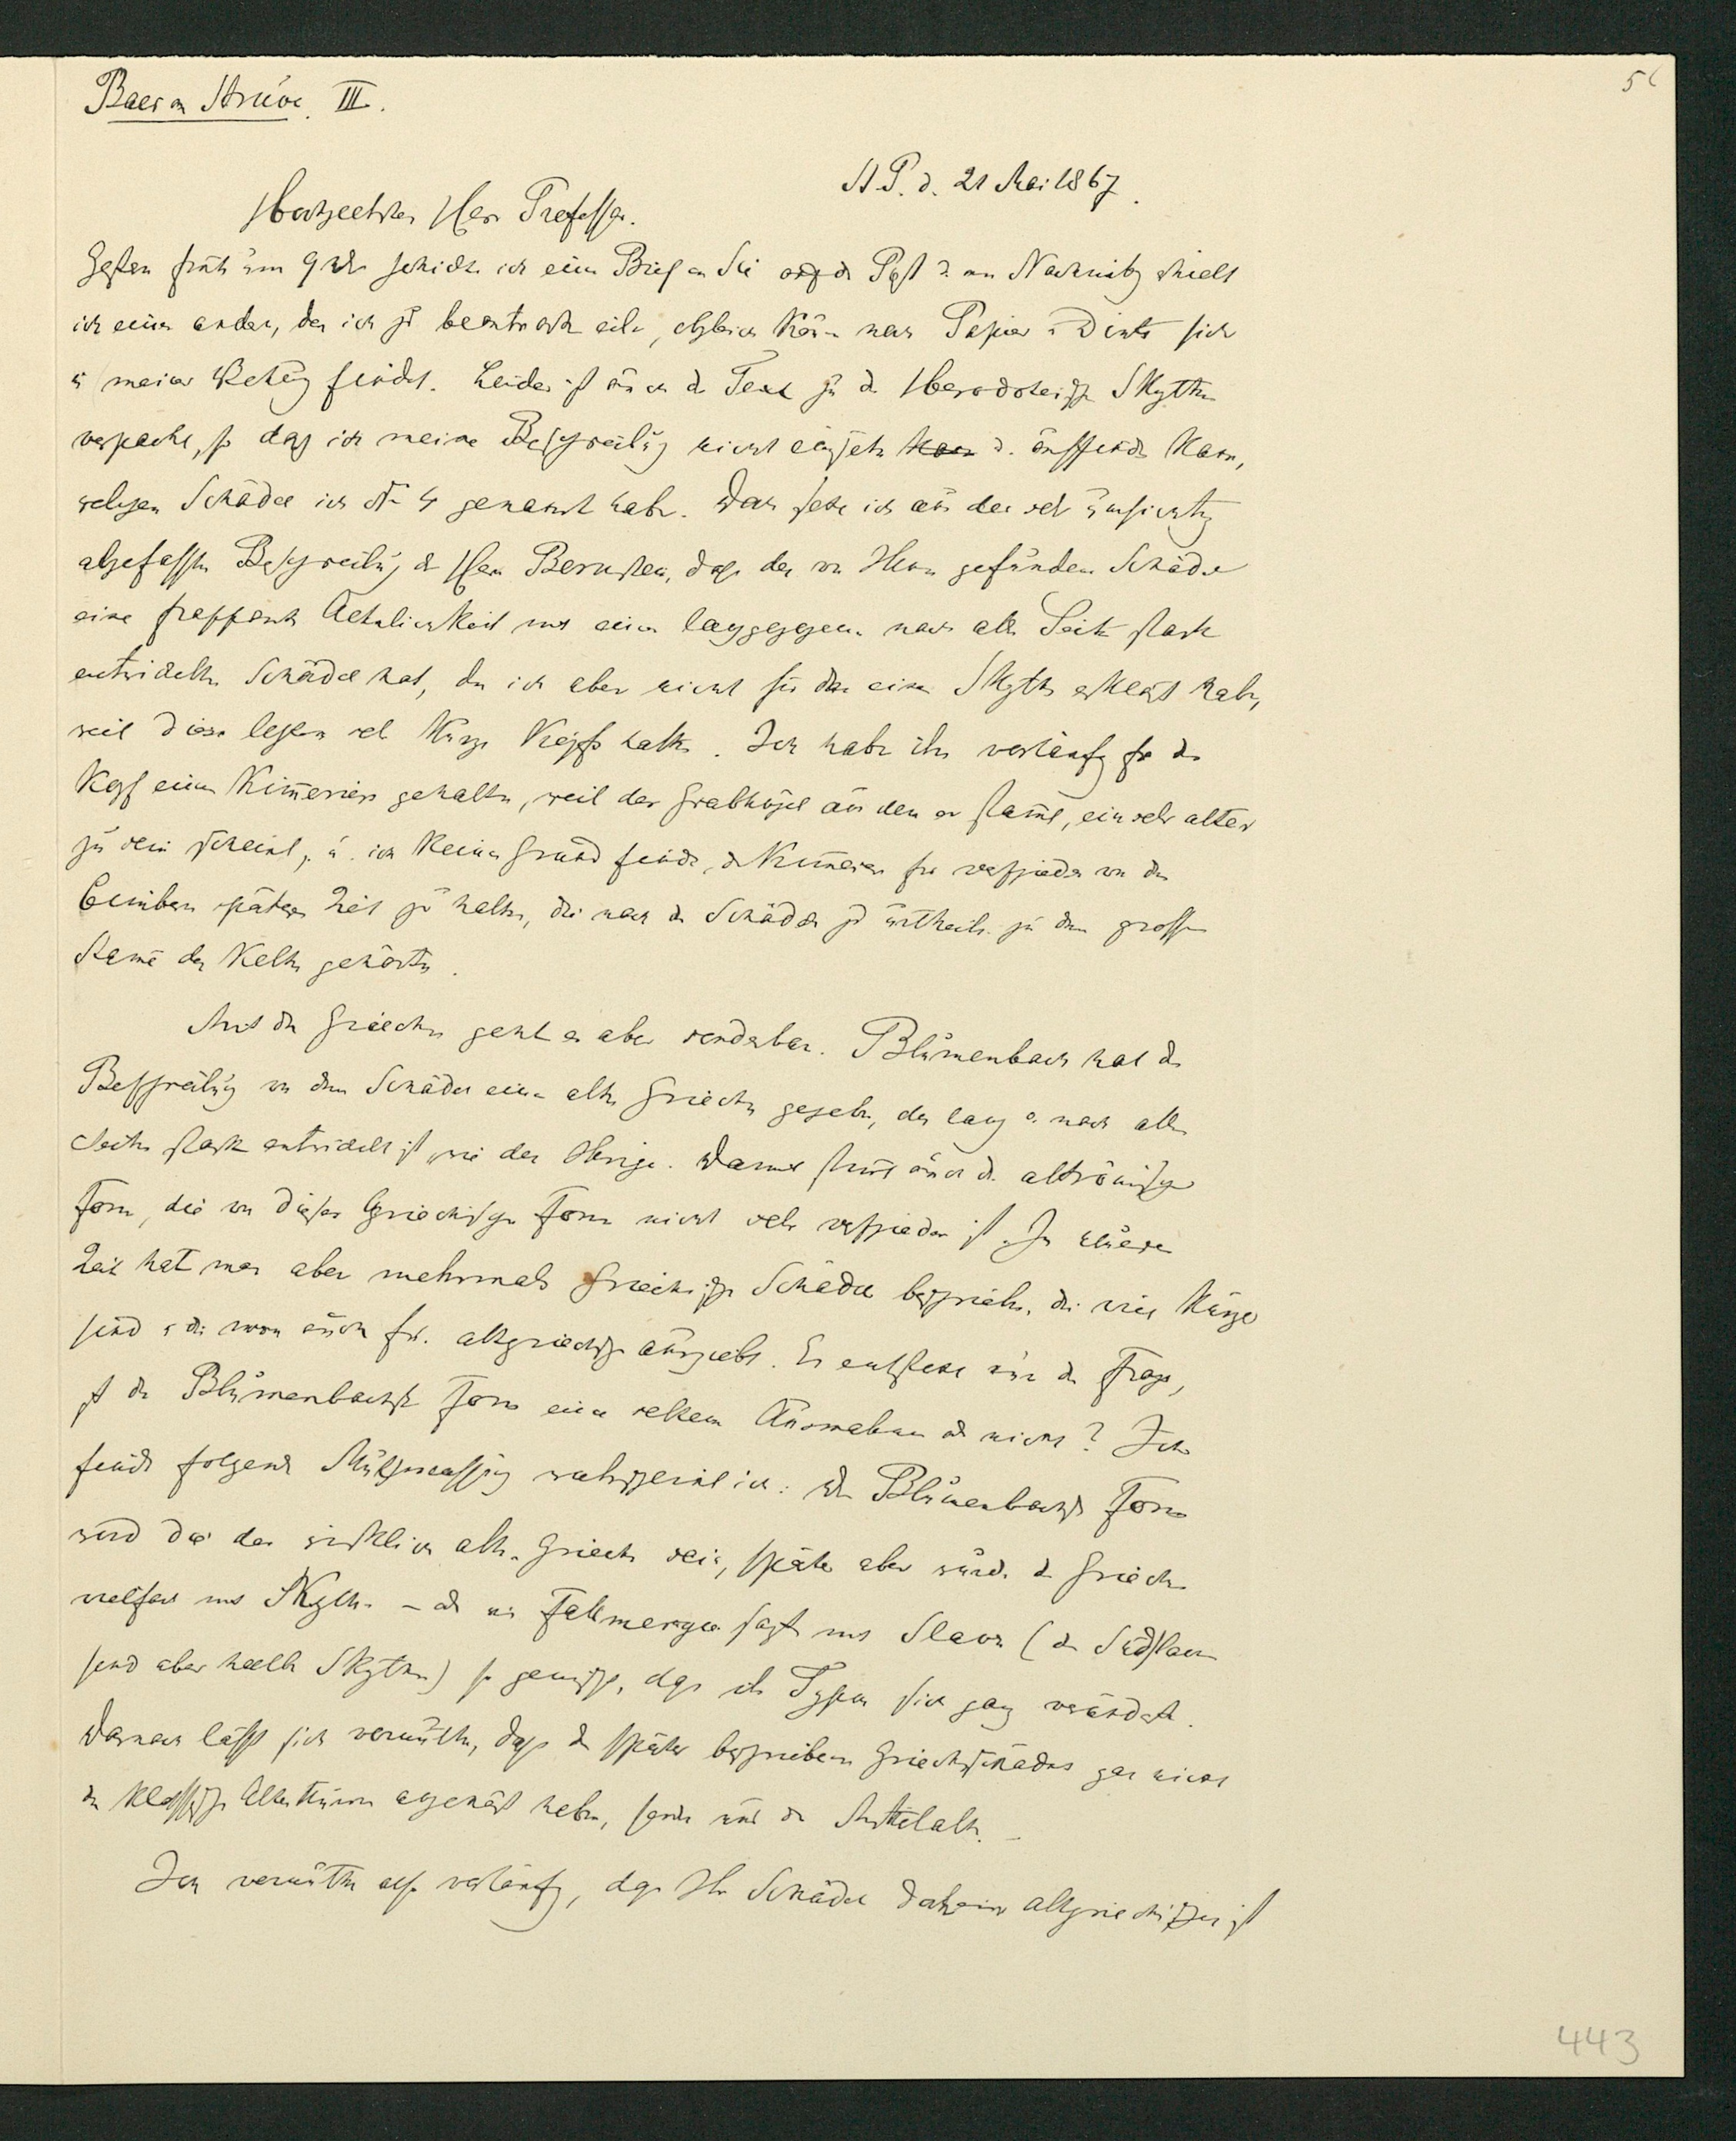 Baer an Struve. III.
56
St P. d. 21 Mai 1867.
Hochgeehrter Herr Professor.
Gestern früh um 9 Uhr schickte ich einen Brief an Sie auf die Post u. am Nachmittag erhielt
ich einen andern, den ich zu beantworten eile, obgleich kaum noch Papier u Dinte sich
in meiner Behausung findet. Leider ist auch der Text zu den Herodoteischen Skythen
verpackt, so dass ich meine Beschreibung nicht einsehen u. auffinden kann,
welchen Schädel ich N 4 genannt habe. Doch sehe ich aus der sehr umsichtig
abgefassten Beschreibung des Herrn Bernstein, dass der von Ihnen gefundene Schädel
eine frappante Aehnlichkeit mit einem langgezogenen nach allen Seiten stark
entwickelten Schädel hat, den ich aber nicht für den eines Skythen erklärt habe,
weil diese letztern sehr kurze Köpfe hatten. Ich habe ihn vorläufig für den
Kopf eines Kimmeriers gehalten, weil der Grabhügel aus dem er stammt, ein sehr alter
zu sein scheint, u. ich keinen Grund finde, die Kimmerier für verschieden von den
Cimbern späterer Zeit zu halten, die nach den Schädeln zu urtheilen zu dem grossen
Stamme der Kelten gehörten.
Mit den Griechen geht es aber sonderbar. Blumenbach hat die
Beschreibung von dem Schädel eines alten Griechen gegeben, der lang u. nach allen
Seiten stark entwickelt ist, wie der Ihrige. Damit stimmt auch die altrömische
Form, die von dieser Griechischen Form nicht sehr verschieden ist. In neuerer
Zeit hat man aber mehrmals Griechische Schädel beschrieben, die viel kürzer
sind u die man auch für altgriechische ausgiebt. Es entsteht nun die Frage,
ist die Blumenbachsche Form eine seltene Ausnahme oder nicht? Ich
finde folgende Muthmassung wahrscheinlich: Die Blumenbachsche Form
wird die der wirklich alten Griechen sein, später aber wurden die Griechen
vielfach mit Skythen – oder wie Fallmerayer sagt mit Slaven (die Südslaven
sind aber halbe Skythen) so gemischt, dass ihr Typus sich ganz veränderte.
Darnach lässt sich vermuthen, dass die später beschriebenen Griechenschädel gar nicht
dem klassischen Alterthume angehört haben, sondern nur dem Mittelalter. –
Ich vermuthe also vorläufig, dass Ihr Schädel ein altgriechischer ist
443